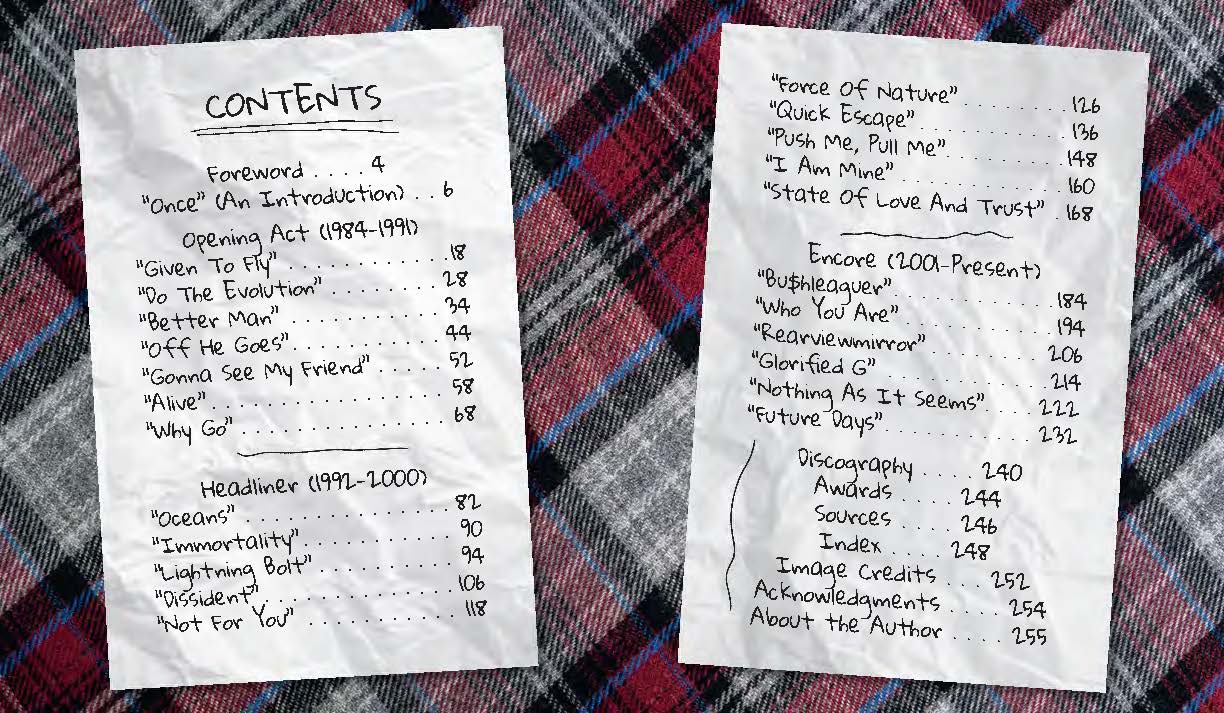 CONTENTS
Foreword . . . . 4
"Once" (An Introduction) . . 6
Opening Act (1984-1991)
"Given To Fly" . . . . . . . . . . . . 18
"Do The Evolution" . . . . . . . . 28
"Better Man" . . . . . . . . . . . . 34
"Off He Goes" . . . . . . . . . . . 44
"Gonna See My Friend" . . . . . . 52
"Alive" . . . . . . . . . . . . . . . . 58
"Why Go" . . . . . . . . . . . . . . 68
Headliner (1992-2000)
"Oceans" . . . . . . . . . . . . . . 82
"Immortality" . . . . . . . . . . . 90
"Lightning Bolt" . . . . . . . . . . 94
"Dissident" . . . . . . . . . . . . . 106
"Not For You" . . . . . . . . . . . 118
"Force Of Nature" . . . . . . . . 126
"Quick Escape" . . . . . . . . . . . 136
"Push Me, Pull Me" . . . . . . . . 148
"I Am Mine" . . . . . . . . . . . . 160
"State Of Love And Trust" . 168
Encore (2001-Present)
"Bu$hleaguer" . . . . . . . . . . . . 184
"Who You Are" . . . . . . . . . . . 194
"Rearviewmirror" . . . . . . . . . 206
"Glorified G" . . . . . . . . . . . . 214
"Nothing As It Seems" . . . . . 222
"Future Days" . . . . . . . . . . . 232
Discography . . . . 240
Awards . . . . . 244
Sources . . . . . 246
Index . . . . . 248
Image Credits . . . 252
Acknowledgments . . . . . 254
About the Author . . . . 255